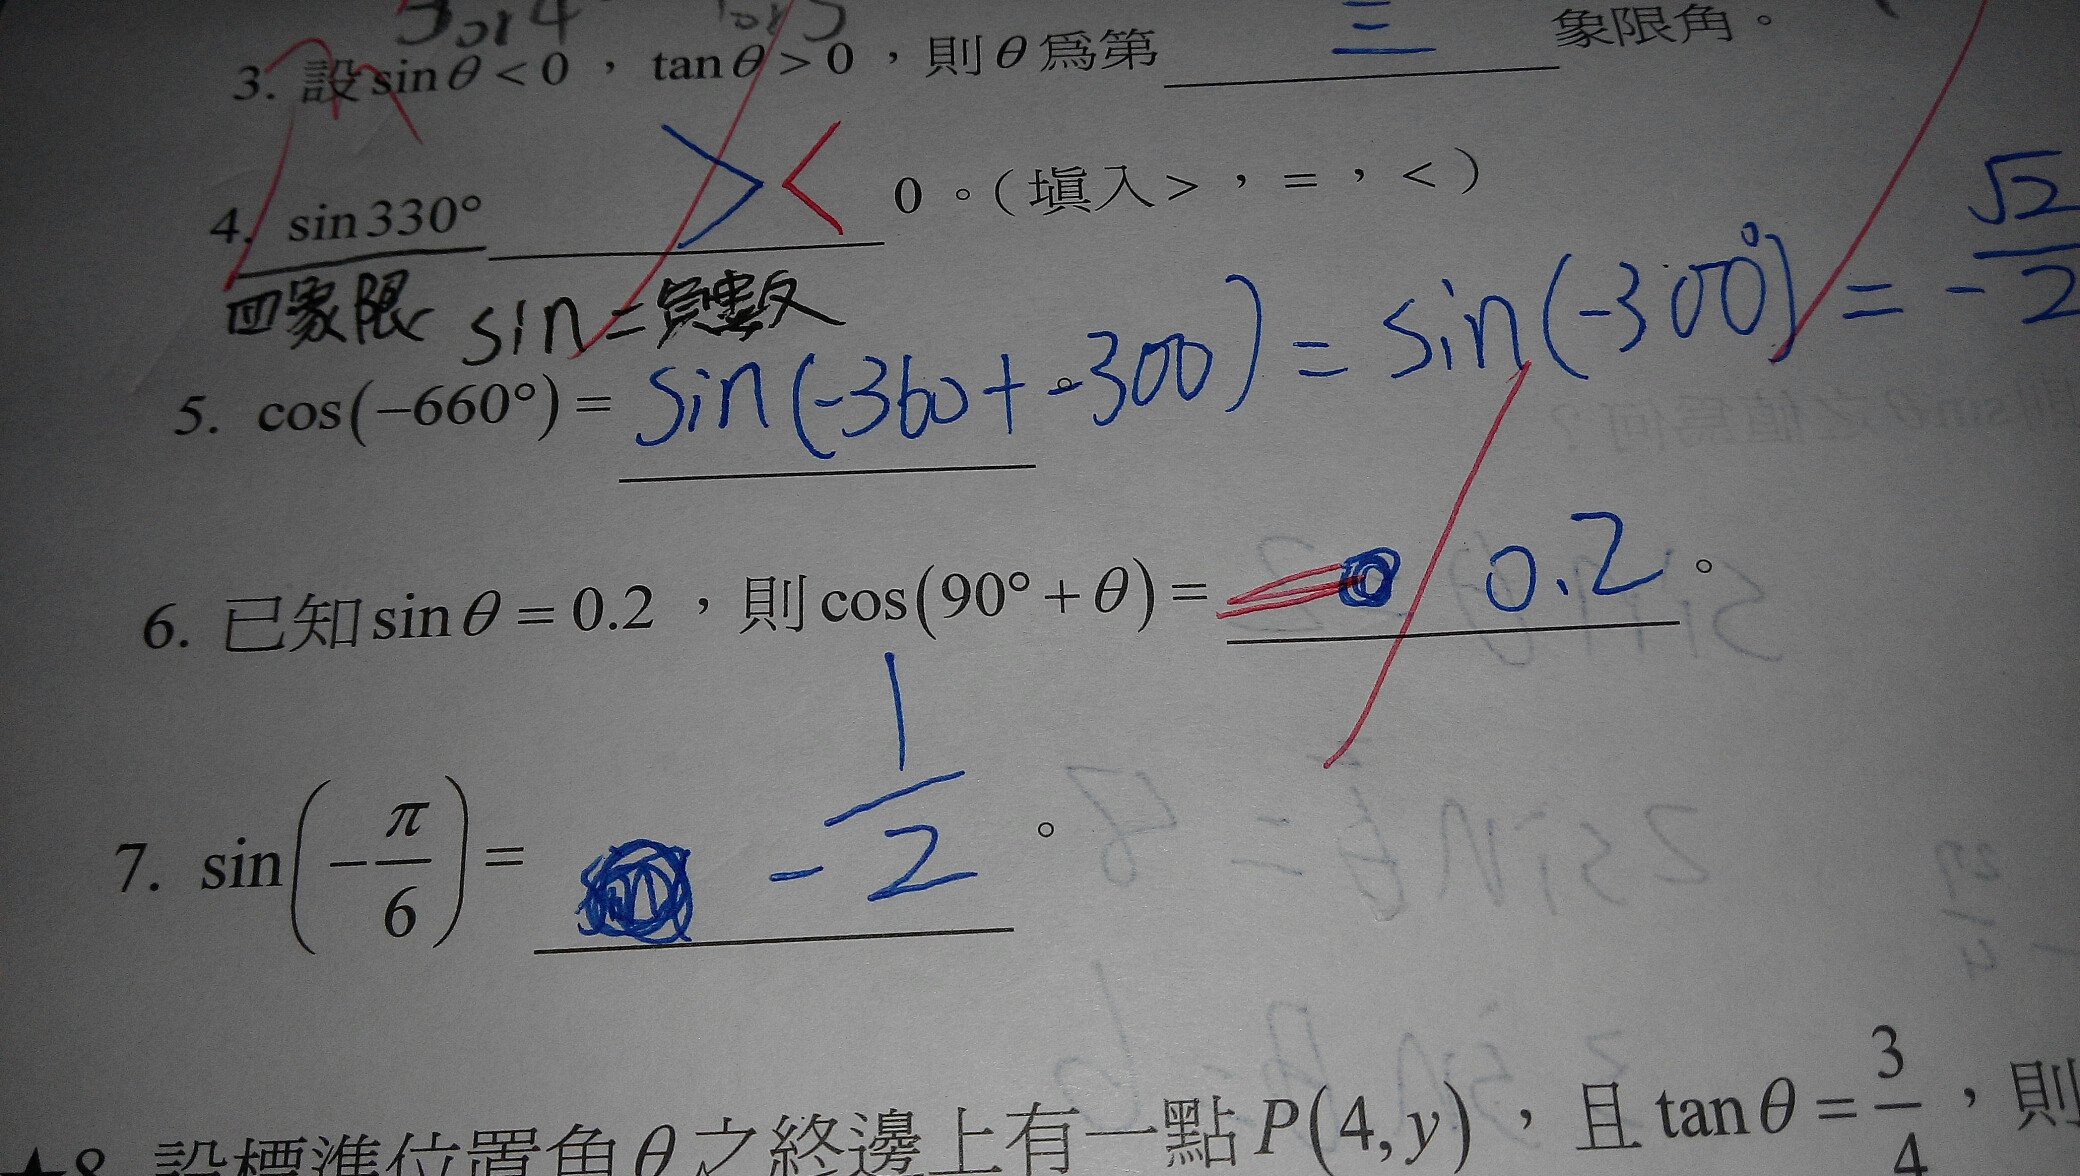 3. 設 sinθ < 0 , tanθ > 0 ,則 θ 爲第 三 象限角。
4. sin330° > < 0 。( 塡入 > , = , < )
四象限 sin = 負數
5. cos(−660°) = sin(-360+-300) = sin(-300°) = -√2/2
6. 已知 sinθ = 0.2 ,則 cos(90° + θ) = 0.2 。
7. sin(−π/6) = -1/2 。
★8. 設標準位置角 θ 之終邊上有一點 P(4, y) ,且 tanθ = 3/4 ,則